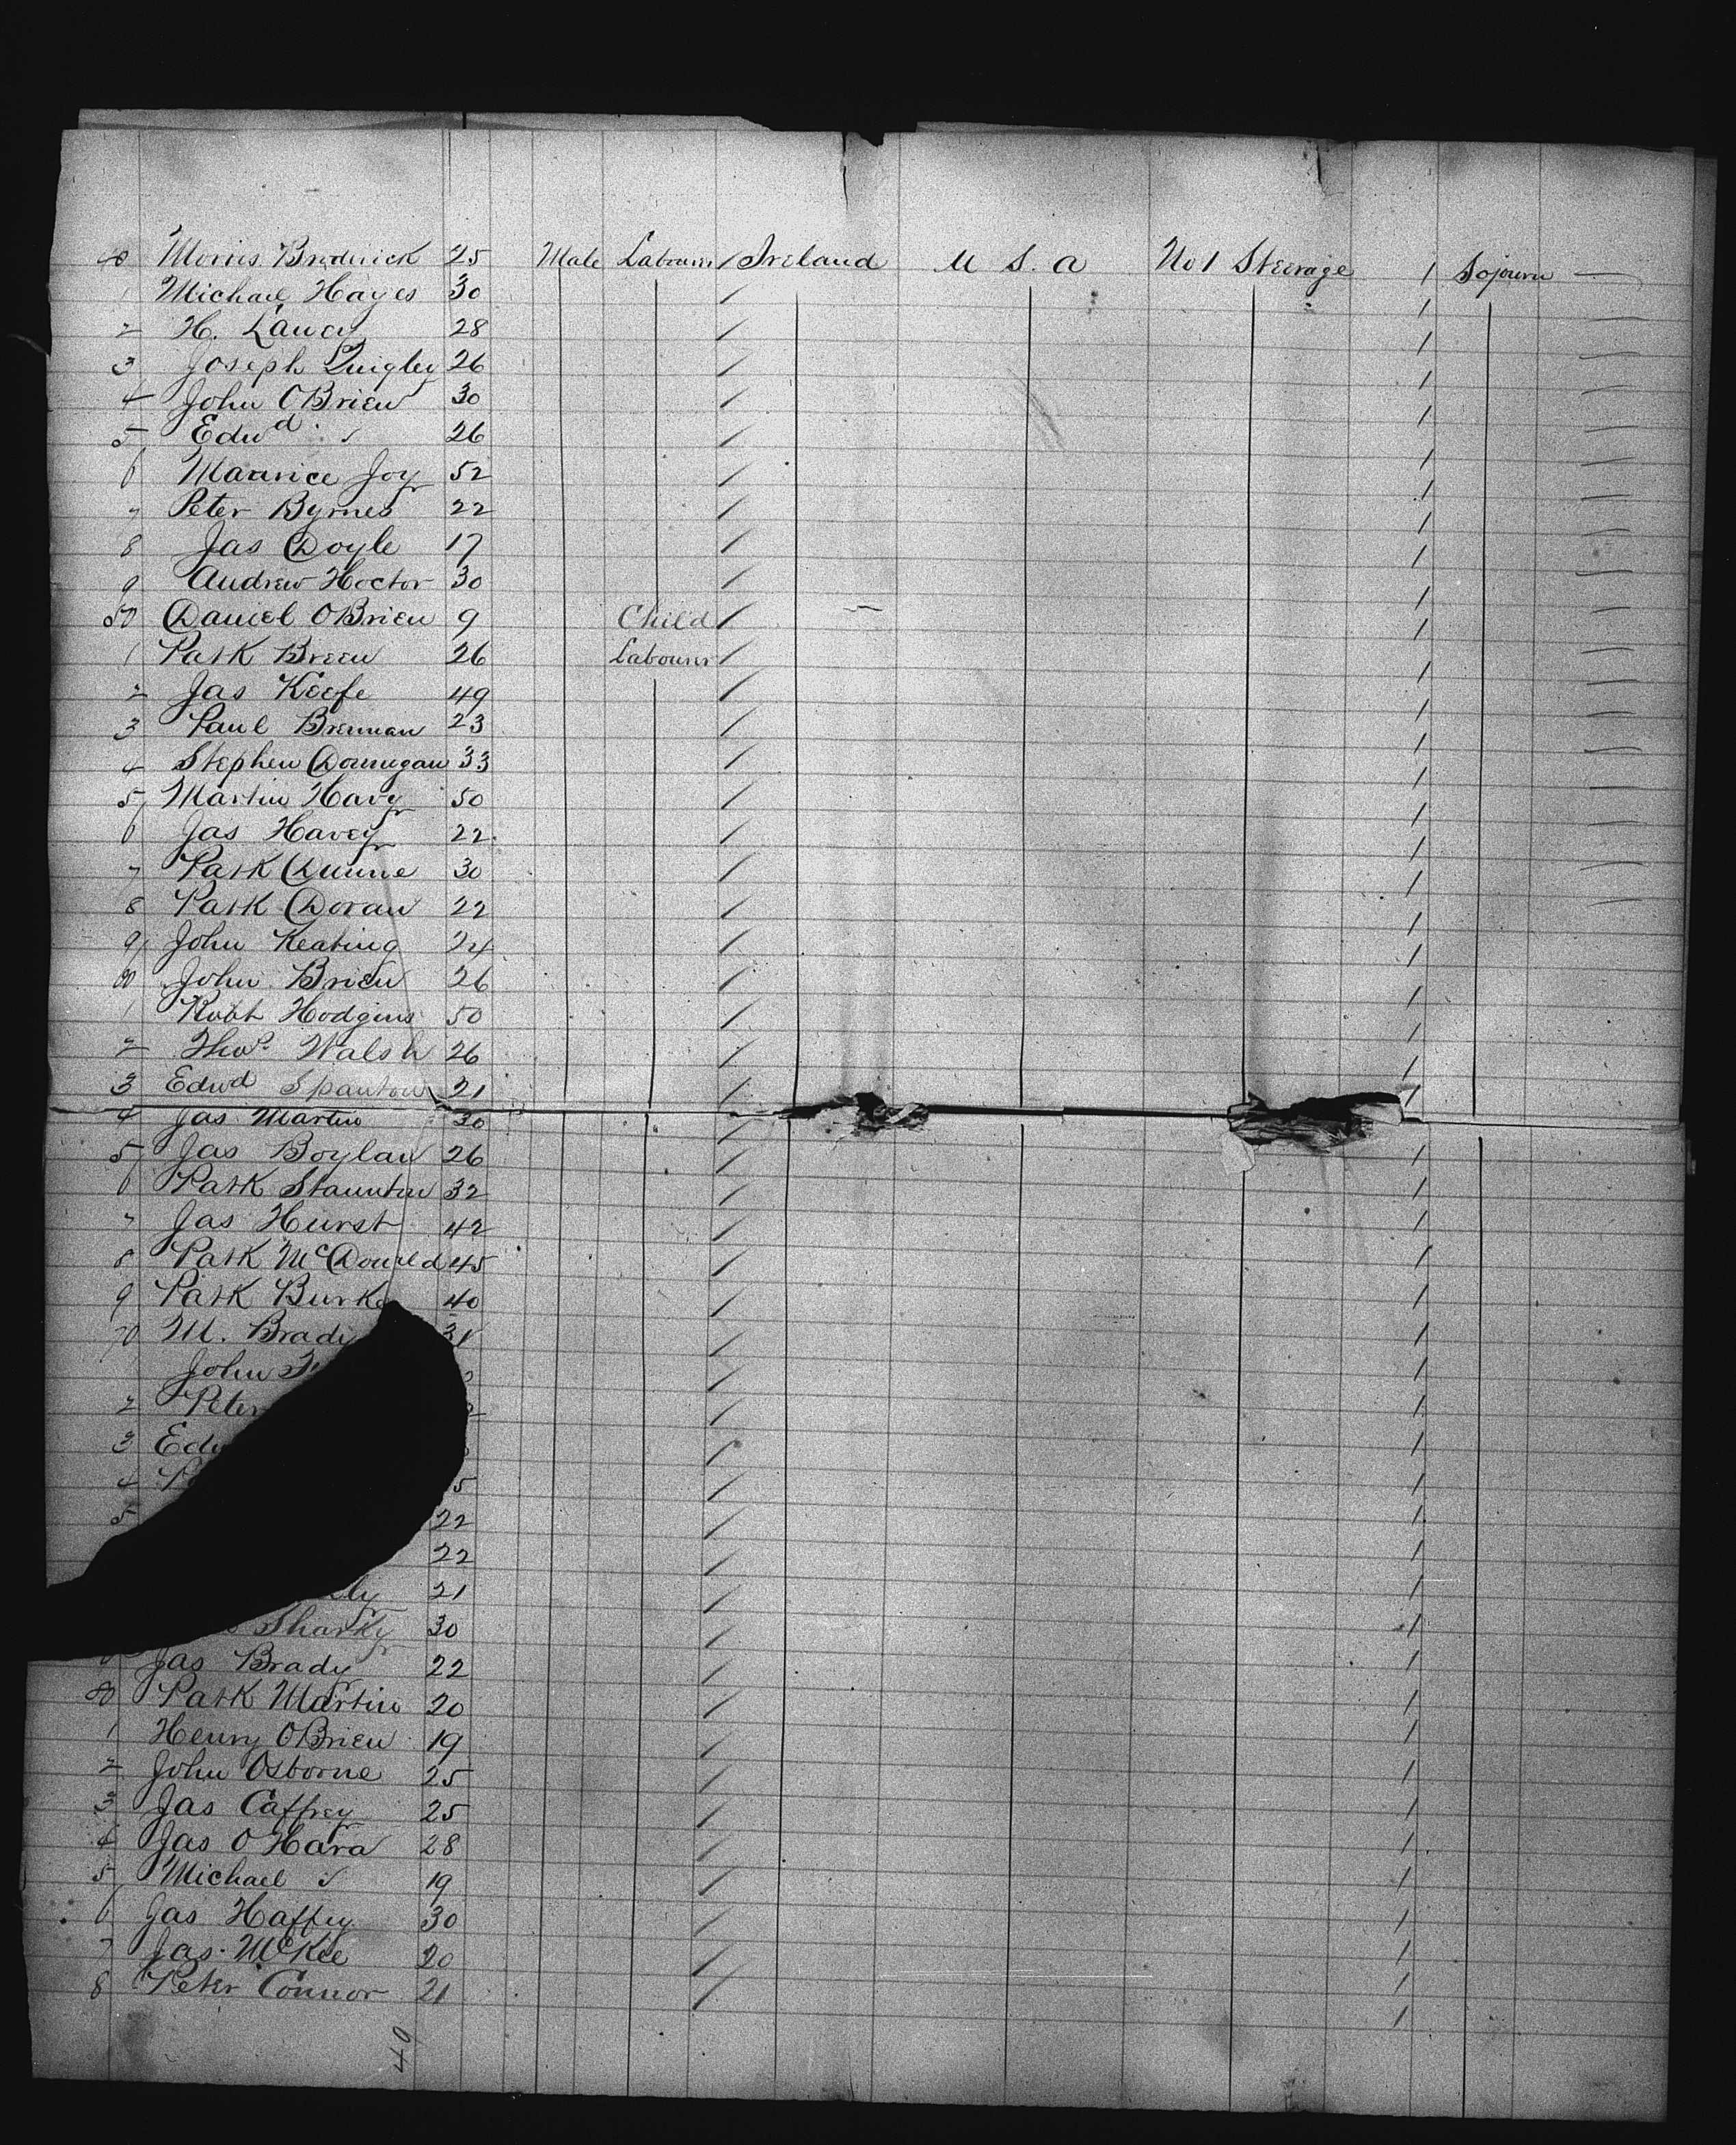 40 Morris Broderick 25 Male Labourer / Ireland U S. a No 1 Steerage 1 Sojourn —
1 Michael Hayes 30 / 1 —
2 H. 28 / 1 —
3 Joseph Quigley 26 / 1 —
4 John OBrien 30 / 1 —
5 Edwd. 26 / 1 —
6 Maurice Joy 52 / 1 —
7 Peter Byrnes 22 / 1 —
8 Jas Doyle 17 / 1 —
9 Andrew Hoctor 30 / 1 —
50 Daniel OBrien 9 Child / 1 —
1 Patk Breen 26 Labourer / 1 —
2 Jas Keefe 49 / 1 —
3 Paul Brennan 23 / 1 —
4 Stephen Dounugan 33 / 1 —
5 Martin Havy 50 / 1 —
6 Jas Havey 22 / 1 —
7 Patk Dunne 30 / 1 —
8 Patk Doran 22 / 1 —
9 John Keating 24 / 1
60 John Brien 26 / 1
1 Robt Hodgins 50 / 1
2 Thos. Walsh 26 / 1
3 Edwd Spanton 21 / 1
4 Jas Martin 30 /
5 Jas Boylan 26 / 1
6 Patk Staunton 32 / 1
7 Jas Hurst 42 / 1
8 Patk McDonald 45 / 1
9 Patk Burke 40 / 1
70 M. Bradi 31 / 1
John / 1
2 Peter / 1
3 Edw / 1
4 5 / 1
5 22 / 1
22 / 1
21 / 1
Sharky 30 / 1
Jas Brady 22 / 1
80 Patk Martin 20 / 1
1 Henry OBrien 19 / 1
2 John Osborne 25 / 1
3 Jas Caffrey 25 / 1
4 Jas O Hara 28 / 1
5 Michael 19 / 1
6 Jas Haffey 30 / 1
7 Jas. McKee 20 / 1
8 Peter Connor 21 / 1
40